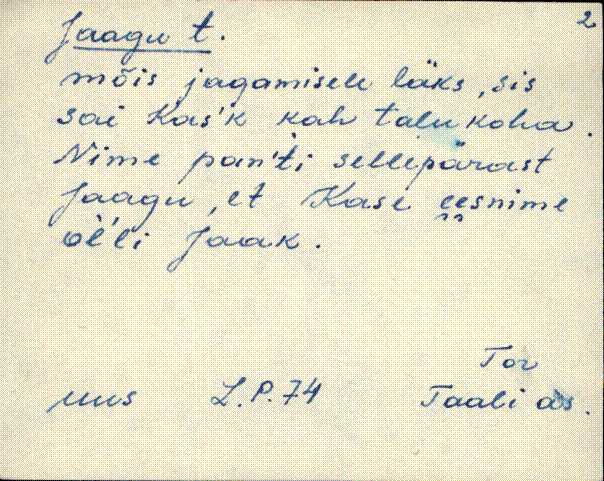 2
Jaagu t.
mõis jagamisele läks, sis
sai Kas'k kah talukoha.
Nime pan'ti sellepärast
Jaagu, et Kase eesnime
òl'li Jaak.
Tor
uus L.P.74 Taali as.